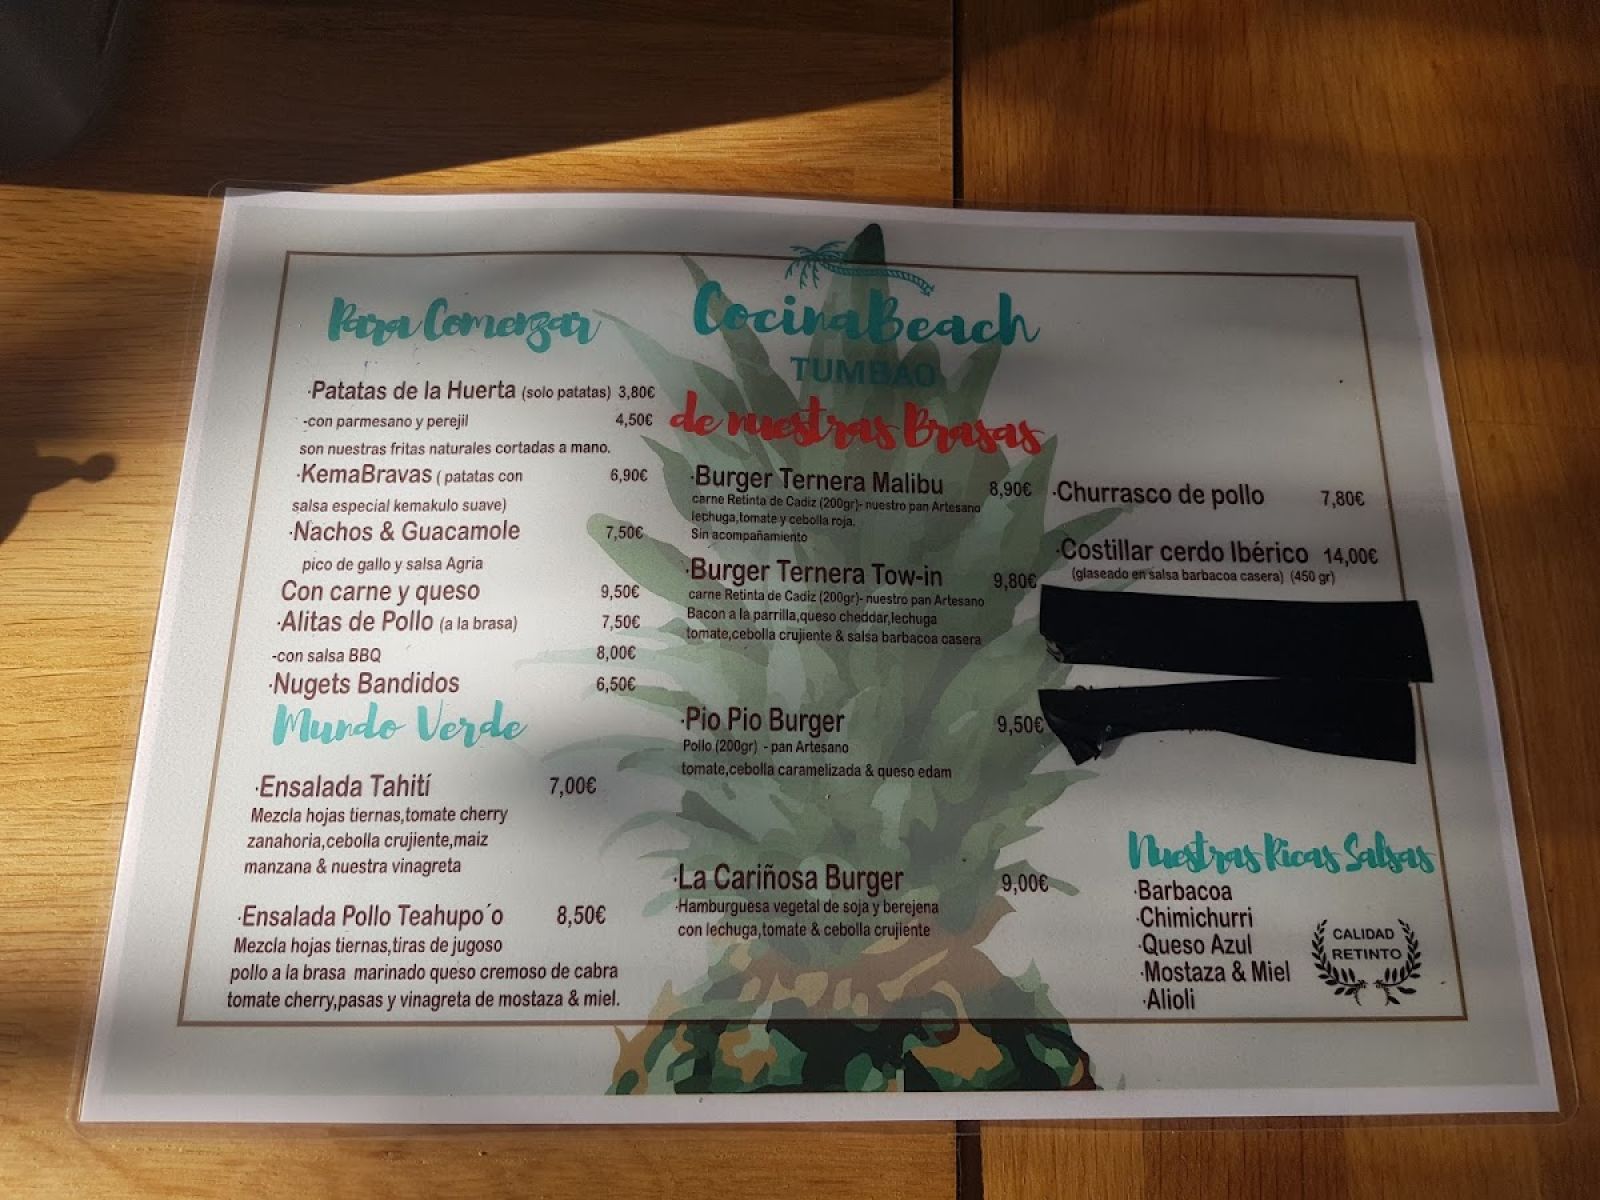 Para Comenzar
·Patatas de la Huerta (solo patatas) 3,80€
-con parmesano y perejil 4,50€
son nuestras fritas naturales cortadas a mano.
·KemaBravas ( patatas con 6,90€
salsa especial kemakulo suave)
·Nachos & Guacamole 7,50€
pico de gallo y salsa Agria
Con carne y queso 9,50€
·Alitas de Pollo (a la brasa) 7,50€
-con salsa BBQ 8,00€
·Nugets Bandidos 6,50€
Mundo Verde
·Ensalada Tahití 7,00€
Mezcla hojas tiernas,tomate cherry
zanahoria,cebolla crujiente,maiz
manzana & nuestra vinagreta
·Ensalada Pollo Teahupo´o 8,50€
Mezcla hojas tiernas,tiras de jugoso
pollo a la brasa marinado queso cremoso de cabra
tomate cherry,pasas y vinagreta de mostaza & miel.
CocinaBeach
TUMBAO
de nuestras Brasas
·Burger Ternera Malibu 8,90€
carne Retinta de Cadiz (200gr)- nuestro pan Artesano
lechuga,tomate y cebolla roja.
Sin acompañamiento
·Burger Ternera Tow-in 9,80€
carne Retinta de Cadiz (200gr)- nuestro pan Artesano
Bacon a la parrilla,queso cheddar,lechuga
tomate,cebolla crujiente & salsa barbacoa casera
·Pio Pio Burger 9,50€
Pollo (200gr) - pan Artesano
tomate,cebolla caramelizada & queso edam
·La Cariñosa Burger 9,00€
·Hamburguesa vegetal de soja y berejena
con lechuga,tomate & cebolla crujiente
·Churrasco de pollo 7,80€
·Costillar cerdo Ibérico 14,00€
(glaseado en salsa barbacoa casera) (450 gr)
Nuestras Ricas Salsas
·Barbacoa
·Chimichurri
·Queso Azul
·Mostaza & Miel
·Alioli
CALIDAD
RETINTO